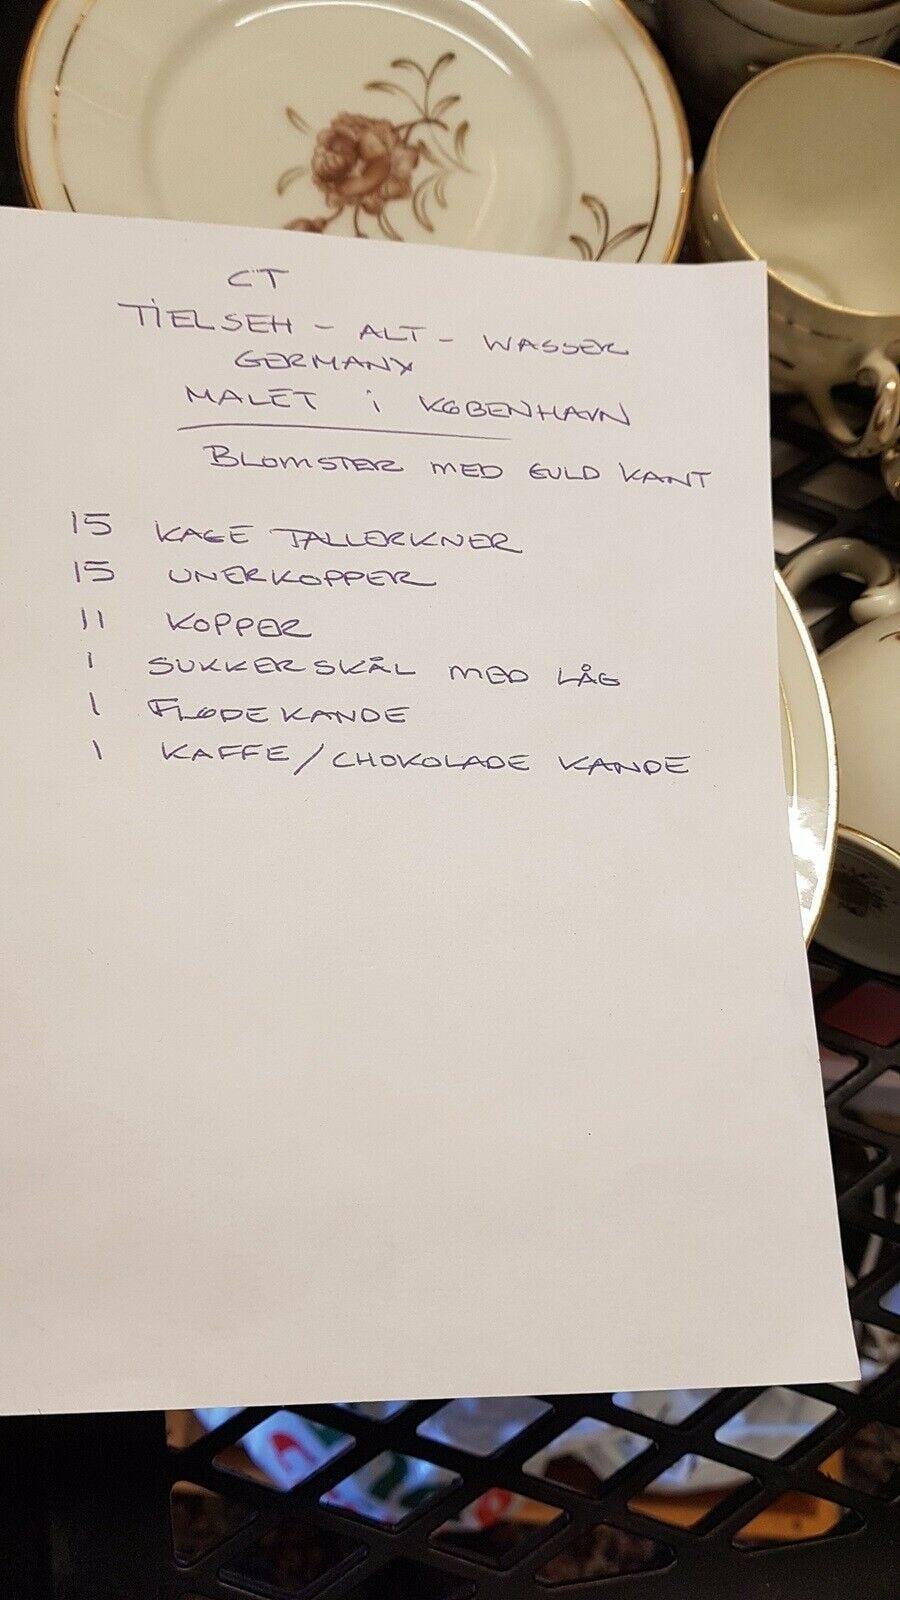 CT
TIELSEH - ALT - WASSER
GERMANY
MALET i KØBENHAVN
BLOMSTER MED GULD KANT
15 KAGE TALLERKNER
15 UNERKOPPER
11 KOPPER
1 SUKKERSKÅL MED LÅG
1 FLØDEKANDE
1 KAFFE/CHOKOLADE KANDE